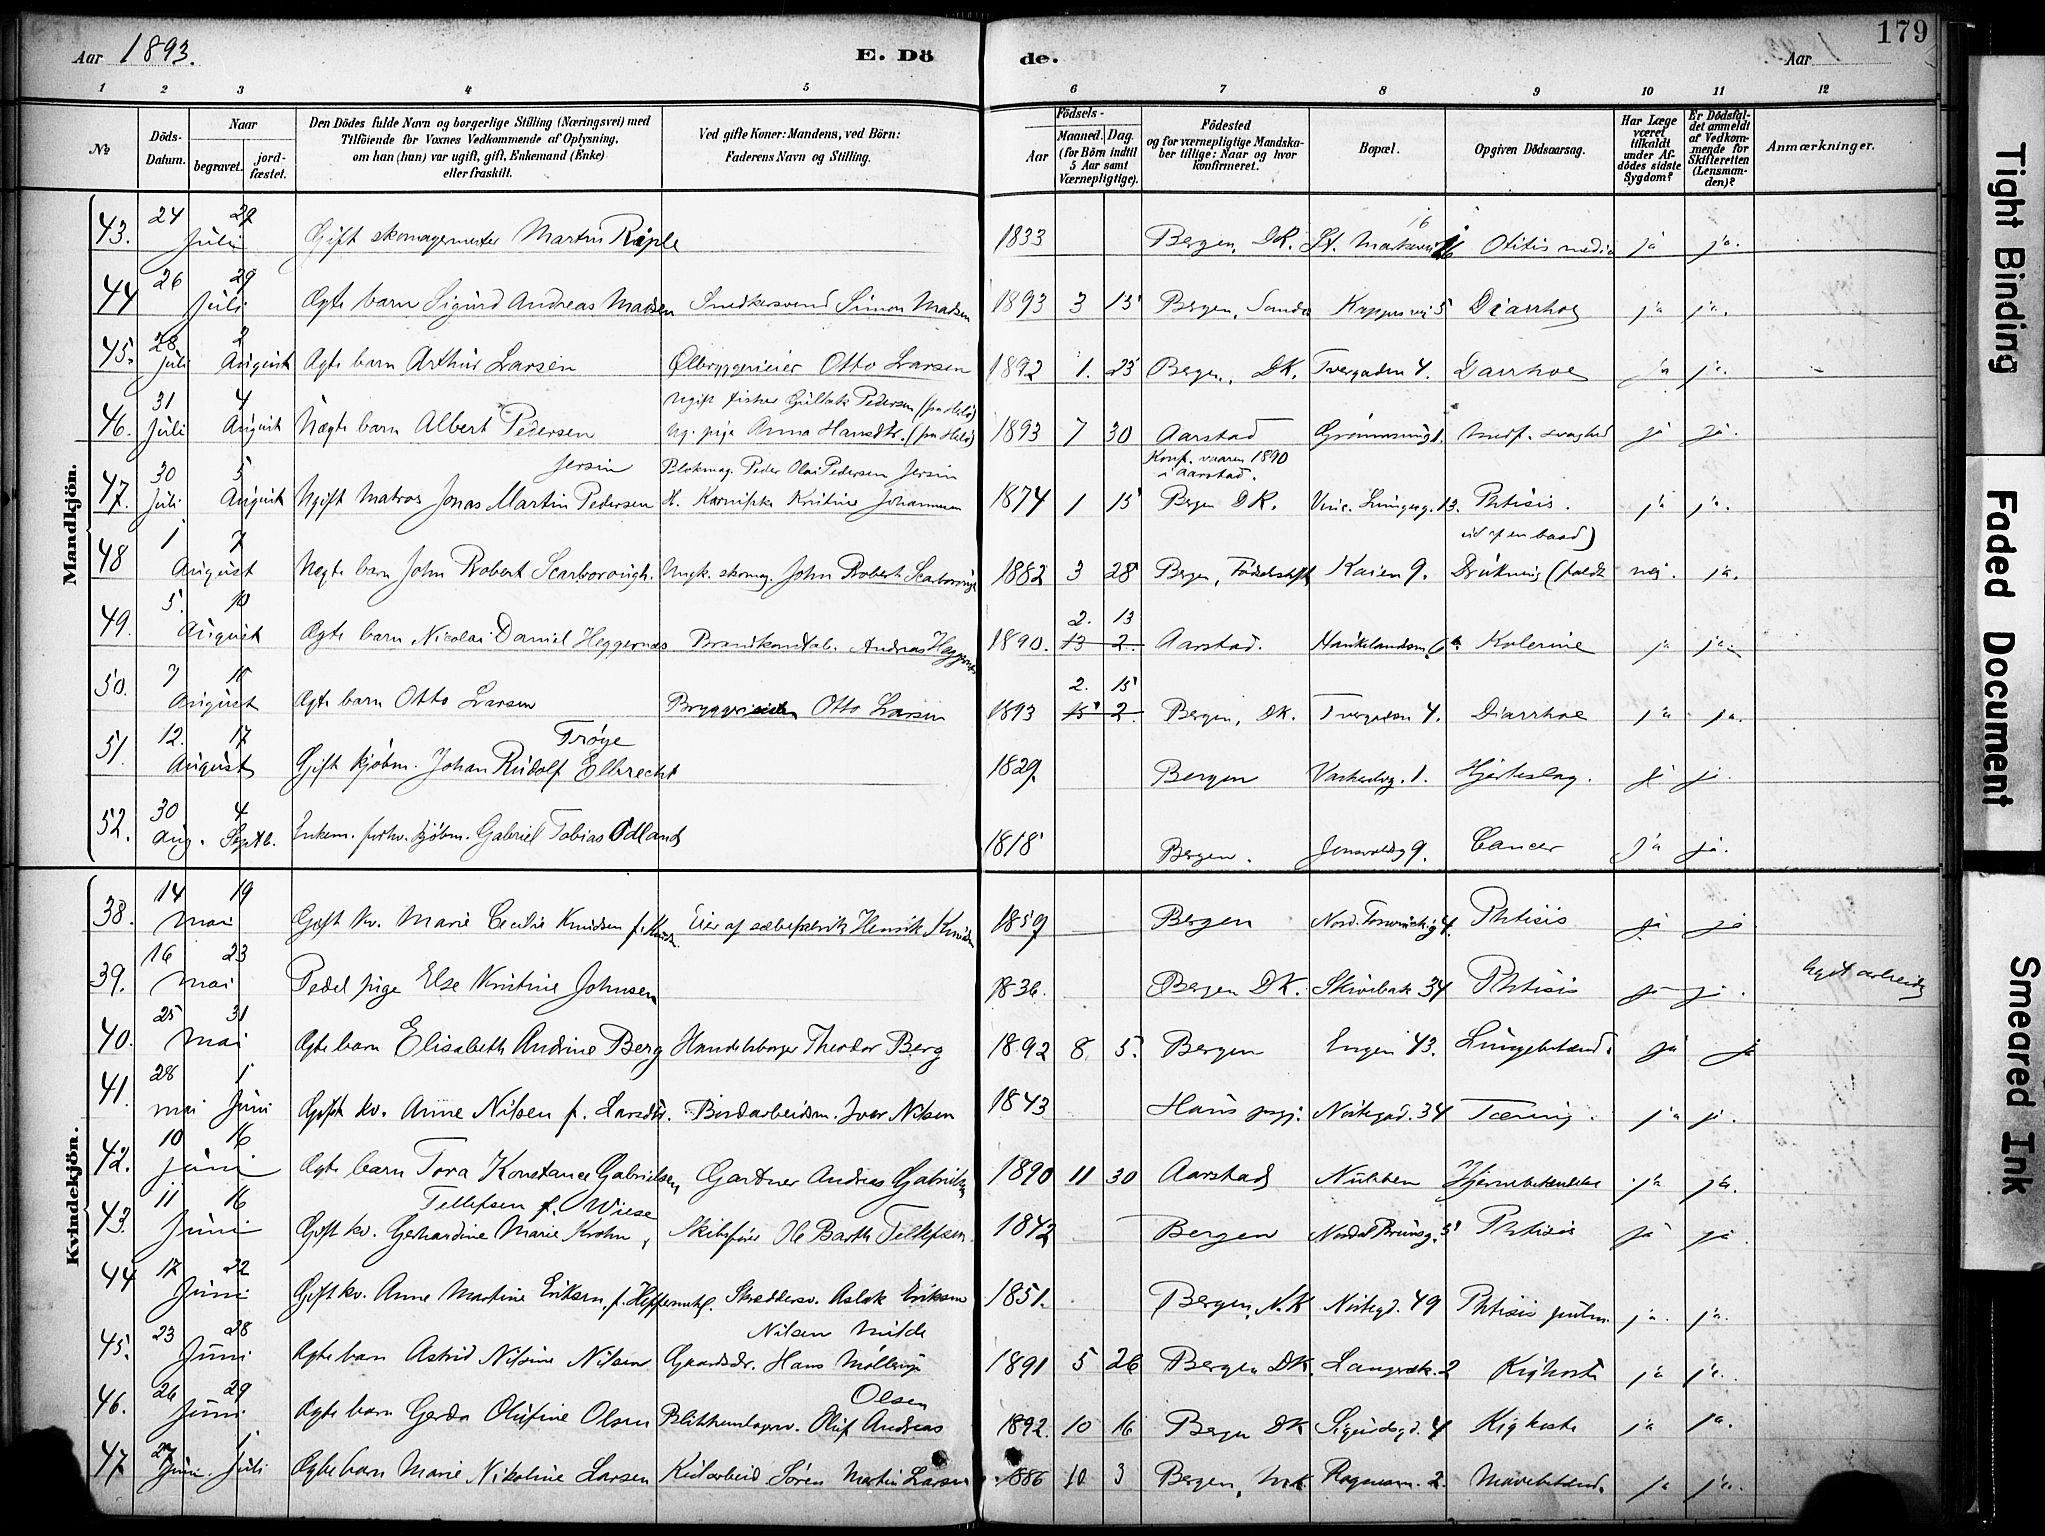 Aar 1893. E. Dö de. Aar 179
1 2 3 4 5 6 7 8 9 10 11 12
№ Döds-Datum. Naar begravet. jordfæstet. Den Dödes fulde Navn og borgerlige Stilling (Næringsvei) med Tilföiende for Voxnes Vedkommende af Oplysning, om han (hun) var ugift, gift, Enkemand (Enke) eller fraskilt. Ved gifte Koner: Mandens, ved Börn: Faderens Navn og Stilling. Födsels- Aar Maaned. Dag. (for Börn indtil 5 Aar samt Værnepligtige). Födested og for værnepligtige Mandskaber tillige: Naar og hvor konfirmeret. Bopæl. Opgiven Dödsaarsag. Har Læge været tilkaldt under Afdödes sidste Sygdom? Er Dödsfaldet anmeldt af Vedkommende for Skifteretten (Lensmanden)? Anmærkninger.
Mandkjön.
43. 24 29 Juli Gift skomagermester Martin Riple 1833 Bergen, DK. St. Markevei 16 Otitis media ja ja.
44 26 29 Juli Ægte barn Sigurd Andreas Madsen Snedkersvend Simon Madsen 1893 3 15 Bergen, 5 Diarrhoe ja ja.
45. 28 Juli 2 August Ægte barn Arthur Larsen Ølbryggerieier Otto Larsen 1892 1. 25 Bergen, DK. Tvergaden 4. Diarrhoe ja ja.
46. 31 Juli 4 August Uægte barn Albert Pedersen Ugift fisker Pedersen Ug. pige Anna Hansdtr. 1893 7 30 Aarstad 1. Medf. svaghed ja ja.
47. 30 Juli 5 August Ugift Matros Jonas Martin Pedersen Jersin Blokmag. Peder Olai Pedersen Jersin Kristine Johannesen 1874 1 15 Konf. vaaren 1890 i Aarstad. Bergen DK. 13. Phtisis. ja ja.
48 1 7 August Uægte barn John Robert Scarborough. Ungk. skomag. John Robert Scarborough 1882 3 28 Bergen, Fødselsstift. Kaien 9. Drukning (faldt ud af en baad) nei. ja.
49. 5. 10 August Ægte barn Nicolai Daniel Heggernæs Brandkonstab. Andreas Heggernæs 1890. 2. 13 13 2. Aarstad. Haukelandsv. 6a Kolerine ja ja.
50. 7 10 August Ægte barn Otto Larsen Bryggerieier Otto Larsen 1893 2. 15 15 2. Bergen, DK. Tvergaden 4. Diarrhoe ja ja.
51. 12. 17 August Gift kjøbm. Johan Rudolf Elbrecht Trøye 1829. Bergen 1. Hjerteslag. ja ja.
52. 30 Aug. 4 Septb. Enkem. forhv. kjøbm. Gabriel Tobias Ødland 1818 Bergen. 9. Cancer ja ja.
Kvindekjön.
38. 14 19 Mai Gift kv. Marie Cecilie Knudsen Eier af sæbefabrik Henrik Knudsen 1859 Bergen 4. Phtisis ja ja
39. 16 23 Mai Pedel pige Else Kristine Johnsen 1836. Bergen DK. Skivebak. 34 Phtisis ja ja.
40. 25 31 Mai Ægte barn Elisabeth Andrine Berg Handelsborger Theodor Berg 1892 8. 5. Bergen Engen 43. Lungebetænd. ja ja
41. 28 Mai 1 Juni Gift kv. Anne Nilsen f. Larsdtr. Iver Nilsen 1843 Haus Nøstegd. 34 Tæring. ja ja.
42. 10 16 Juni Ægte barn Tora Konstance Gabrielsen Gartner Andreas Gabrielsen 1890 11 30 Aarstad Nubben Hjernebetændelse ja ja.
43. 11 16 Juni Gift kv. Gerhardine Marie Krohn Tellefsen f. Wiese Skibsfører Ole Barth Tellefsen. 1842 Bergen Nordal Brunsg. 5 Phtisis ja ja.
44 17 22 Juni Gift kv. Anne Martine Eriksen Skræddersv. Aslak Eriksen 1851. Bergen, N.K Nøstegd. 49 Phtisis pulm. ja. ja.
45. 23 28 Juni Ægte barn Astrid Nilsine Nilsen Gaardsdr. Hans Nilsen Milde 1891 5 26 Bergen DK. 2 Kighoste ja ja.
46. 26 29 Juni. Ægte barn Gerda Olufine Olsen Oluf Andreas Olsen 1892. 10 16 Bergen DK Sigurdsgd. 4 Kighoste ja ja.
47 27 Juni. 1 Juli Ægte barn Marie Nikoline Larsen Søren Martin Larsen 1886 10 3 Bergen, 2. Mavebetænd. ja ja.
Tight Binding
Faded Document
Smeared Ink